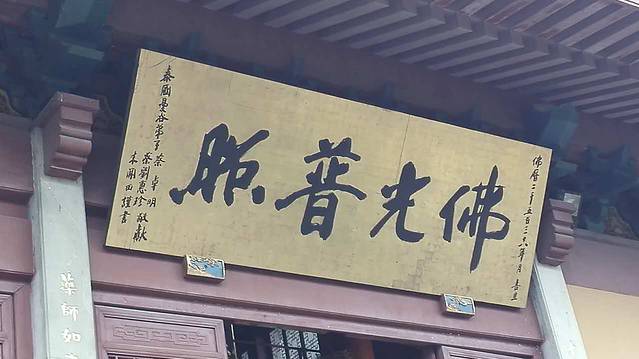 佛曆二千五百三十六年月吉旦
佛光普照
泰國曼谷弟子蔡卓明
蔡劉惠珍敬獻
朱關田謹書
藥師如